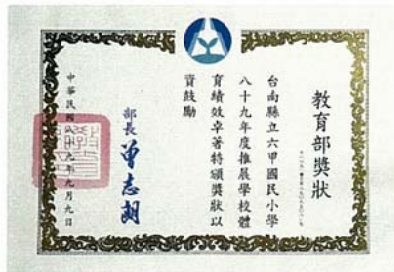 教育部獎狀
台南縣立六甲國民小學
八十九年度推展學校體
育績效卓著特頒獎狀以
資鼓勵
部長 曾志朗
中華民國八十九年九月九日